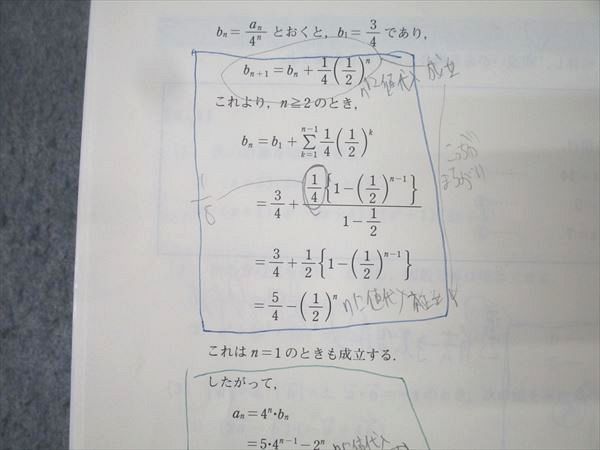 b_n = a_n/4^n とおくと，b_1 = 3/4 であり，
b_{n+1} = b_n + 1/4(1/2)^n
nに値代入 成立
これより，n≧2のとき，
b_n = b_1 + Σ_{k=1}^{n-1} 1/4(1/2)^k
= 3/4 + 1/4{1-(1/2)^{n-1}}/(1-1/2)
1/8
= 3/4 + 1/2{1-(1/2)^{n-1}}
= 5/4 - (1/2)^n
nに値代入
これは n=1 のときも成立する．
したがって，
a_n = 4^n・b_n
= 5・4^{n-1} - 2^n
nに値代入